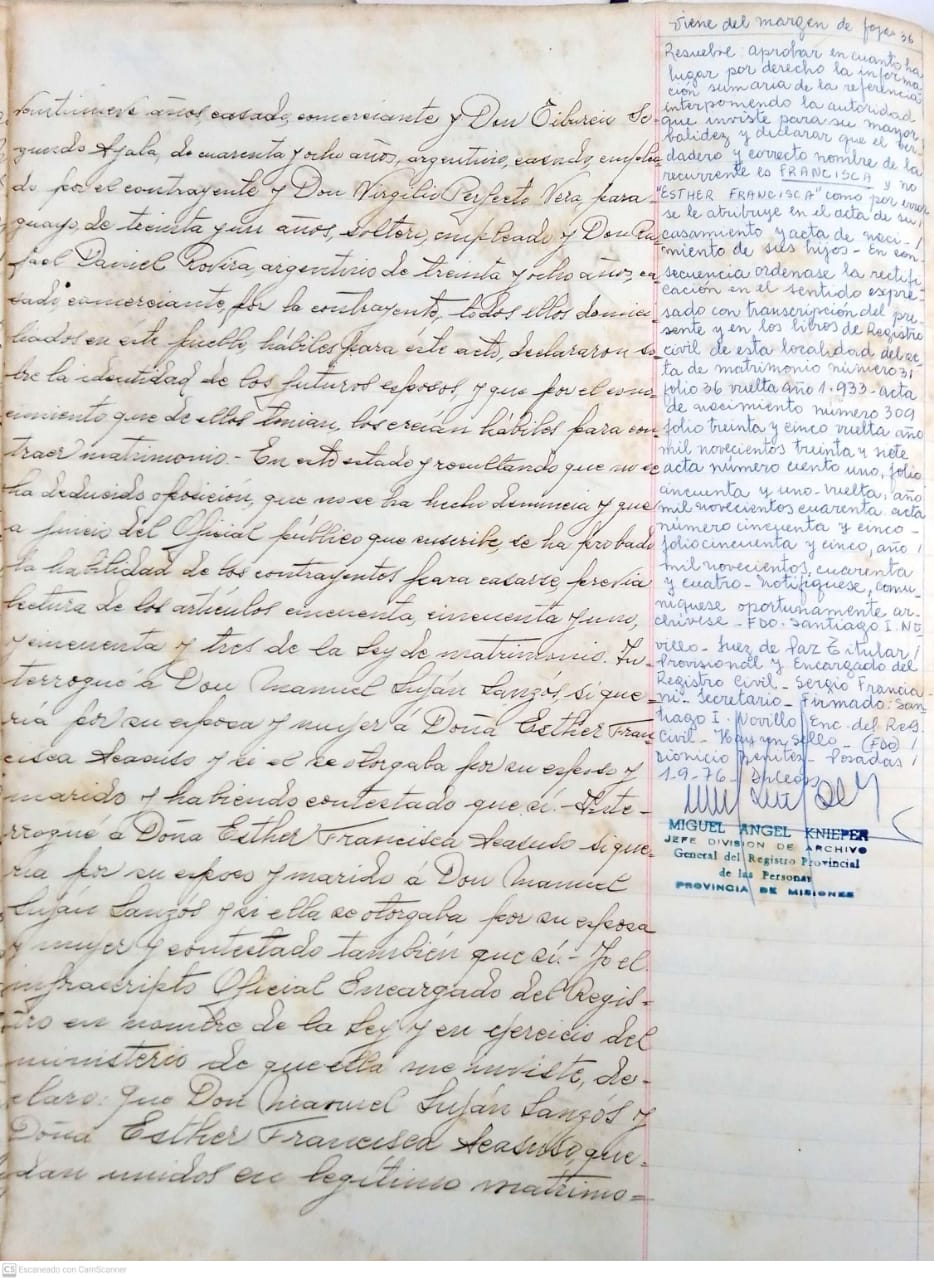 veintinueve años, casado, comerciante y Don Tiburcio Se-
gundo Ayala, de cuarenta y ocho años, argentino, casado, emplea-
do por el contrayente y Don Virgilio Perfecto Vera, para-
guayo, de treinta y un años, soltero, empleado y Don Ra-
fael Daniel Rovira, argentino de treinta y ocho años, ca-
sado, comerciante, por la contrayente, todos ellos domici-
liados en este pueblo, hábiles para éste acto, declararon so-
bre la identidad de los futuros esposos, y que por el cono-
cimiento que de ellos tenian, los creían hábiles para con-
traer matrimonio.- En este estado y resultando que no se
ha deducido oposición, que no se ha hecho denuncia y que
a juicio del Oficial público que suscribe, se ha probado
la habilidad de los contrayentes para casarse, previa
lectura de los artículos cincuenta, cincuenta y uno,
y cincuenta y tres de la Ley de matrimonio. In-
terrogué á Don Manuel Luján Lanzós si que-
ría por su esposa y mujer á Doña Esther Fran-
cisca Acasuso y si el se otorgaba por su esposo y
marido y habiendo contestado que sí.- Inte-
rrogué á Doña Esther Francisca Acasuso si que-
ría por su esposo y marido á Don Manuel
Luján Lanzós y si ella se otorgaba por su esposa
y mujer y contestado también que sí.- Yo el
infrascripto Oficial Encargado del Regis-
tro en nombre de la Ley y en ejercicio del
ministerio de que ella me inviste, de-
claro: Que Don Manuel Luján Lanzós y
Doña Esther Francisca Acasuso, que-
dan unidos en legítimo matrimo-
viene del margen de foja 36
Resuelve: aprobar en cuanto ha
lugar por derecho la informa
ción sumaria de la referencia
interponiendo la autoridad
que inviste para su mayor
balidez y declarar que el ver
dadero y correcto nombre de la
recurrente es FRANCISCA y no
"ESTHER FRANCISCA" como por error
se le atribuye en el acta de su
casamiento y acta de naci- /
miento de sus hijos - En con
secuencia ordenase la rectifi
cación en el sentido expre
sado con transcripción del pre
sente y en los libros de Registro
civil de esta localidad del ac
ta de matrimonio número 31
folio 36 vuelta año 1.933 - acta
de nacimiento número 309
folio treinta y cinco vuelta año
mil novecientos treinta y siete
acta número ciento uno, folio
cincuenta y uno - vuelta, año
mil novecientos cuarenta, acta
número cincuenta y cinco -
folio cincuenta y cinco, año /
mil novecientos, cuarenta
y cuatro - Notifíquese, comu
niquese oportunamente ar-
chivese - FDO. Santiago I. No
villo - Juez de Paz Titular /
Provisional y Encargado del
Registro Civil - Sergio Francia-
ni - Secretario - Firmado: San
tiago I. Novillo Enc. del Reg.
Civil - Hay un sello - (FDO) /
Dionicio Benitez - Posadas /
1-9-76 -
MIGUEL ANGEL KNIEPER
JEFE DIVISION DE ARCHIVO
General del Registro Provincial
de las Personas
PROVINCIA DE MISIONES
CS Escaneado con CamScanner